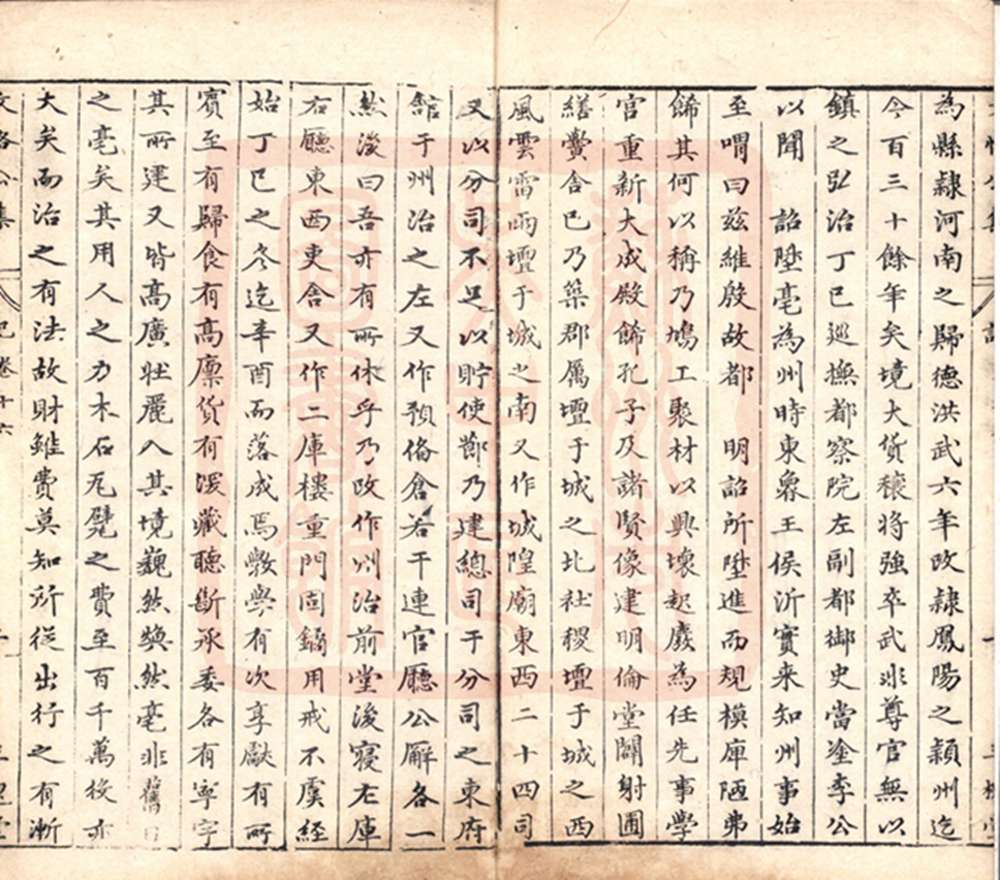 為縣隷河南之歸德洪武六年改隷鳳陽之潁州迄
今百三十餘年矣境大貨穰將強卒武非尊官無以
鎮之弘治丁巳巡撫都察院左副都御史當塗李公
以聞 詔陞亳為州時東魯王侯沂實来知州事始
至喟曰兹維殷故都 明詔所陞進而規模庫陋弗
餙其何以稱乃鳩工聚材以興壊起廢為任先事學
宫重新大成殿餙孔子及諸賢像建明倫堂闢射圃
繕黌舎已乃築郡厲壇于城之北社稷壇于城之西
風雲雷雨壇于城之南又作城隍廟東西二十四司
又以分司不足以貯使節乃建總司于分司之東府
舘于州治之左又作預俻倉若干連官廳公廨各一
然後曰吾亦有所休乎乃改作州治前堂後寝左庫
右廳東西吏舎又作二庫樓重門固鐍用戒不虞經
始丁巳之冬迄辛酉而落成焉斆學有次享獻有所
賓至有歸食有高廪貨有深藏聽斷承委各有寧宇
其所建又皆高廣壯麗入其境觀然奐然亳非舊日
之亳矣其用人之力木石瓦甓之費至百千萬役亦
大矣而治之有法故財雖費莫知所從出行之有漸